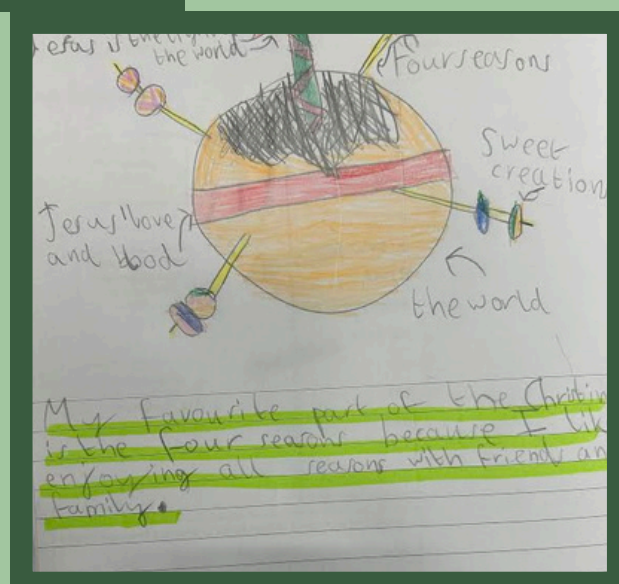 Jesus is the light
the world
Four seasons
Sweet
creation
Jesus' love
and blood
the world
My favourite part of the
is the four seasons because I
enjoying all seasons with friends
family.